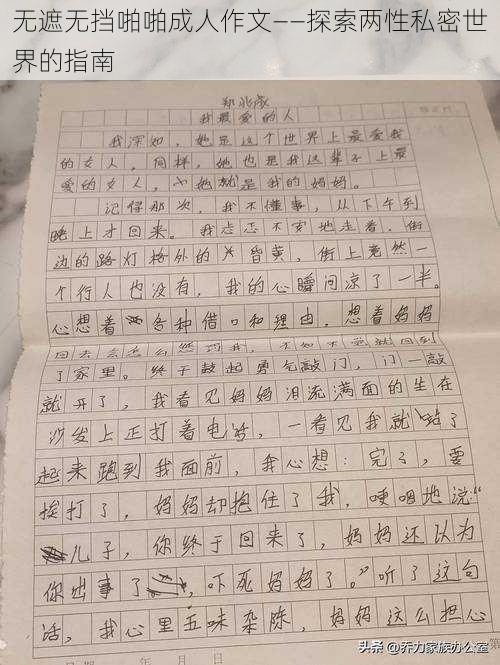 无遮无挡啪啪成人作文——探索两性私密世
界的指南
我最爱的人
我深知，她是这个世界上最爱我
的女人，同样，她也是我这辈子上最
爱的女人，她就是我的妈妈。
记得那次，我不懂事，从下午到
晚上才回来。我忐忑不安地走着，街
边的路灯格外的昏黄，街上竟然一
个行人也没有，我的心瞬间凉了一半。
心想着各种借口和理由，想着妈妈
了家里。终于鼓起勇气敲门，门一敲
就开了，我看见妈妈泪流满面的坐在
沙发上正打着电话，一看见我就站了
起来跑到我面前，我心想：完了，要
挨打了，妈妈却抱住了我，哽咽地说“
儿子，你终于回来了，妈妈还以为
你出事了，吓死妈妈了。”听了这句
话，我心里五味杂陈，妈妈这么担心
年 月 日
第
头条 @乔力家族办公室